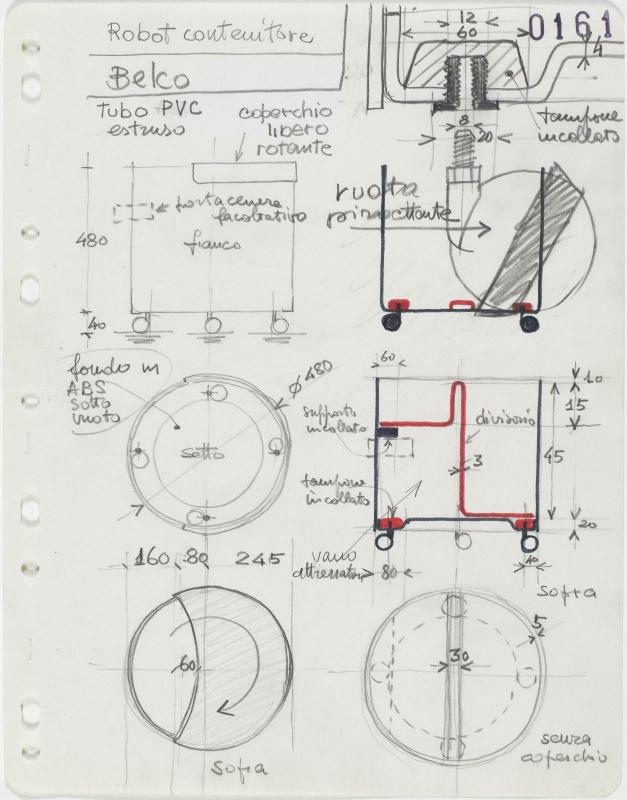 Robot contenitore
Belco
12
60
0161
4
tubo PVC
estruso
coperchio
libero
rotante
tampone
incollato
8
20
ruota
piroettante
portacenere
facoltativo
480
fianco
40
fondo in
ABS
sotto
vuoto
Ø 480
sotto
60
10
15
supporto
incollato
divisorio
3
45
tampone
incollato
20
vano
attrezzatura
80
40
160 80 245
Sopra
60
5
30
Sopra
senza
coperchio